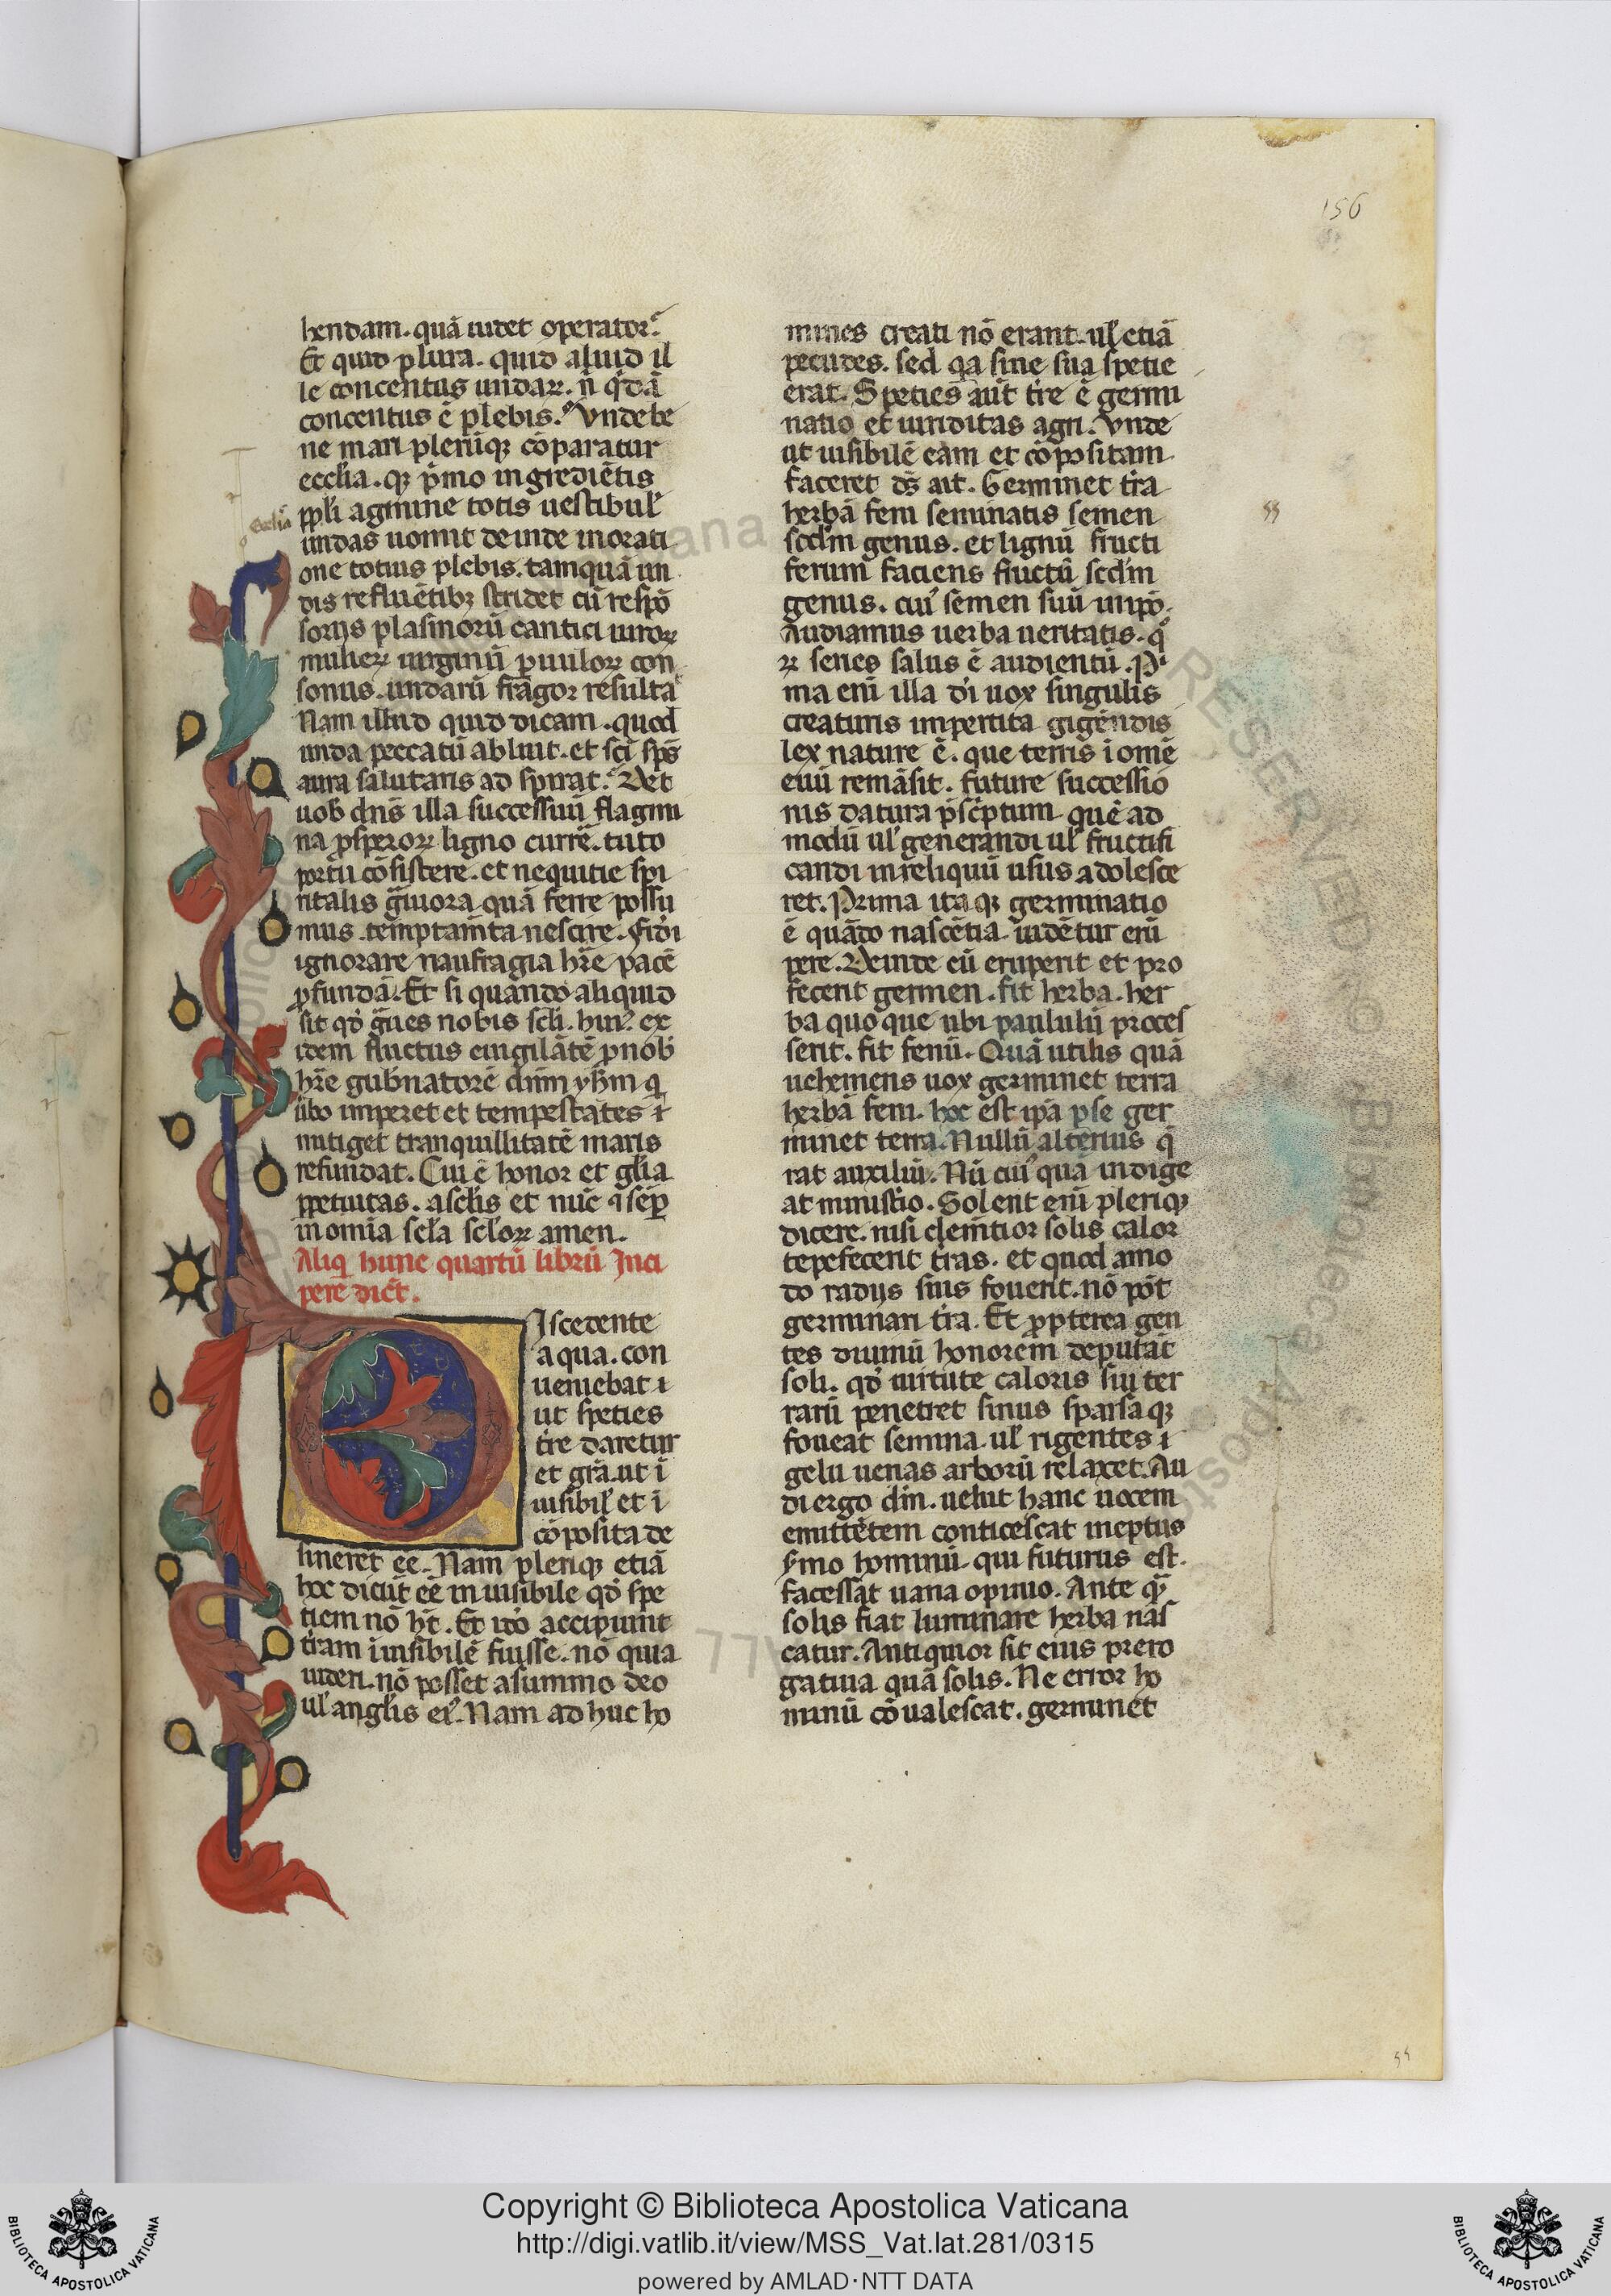 156
hendam. quā uidet operator.
Et quid plura. quid aliud il
le concentus undaꝝ. n̄ q̇dā
concentus ē plebis. Vnde be
ne mari plerūqꝫ cōparatur
ecclīa. qꝫ p̄mo ingrediētis
ppl̄i agmine totis uestibul̓
undas uomit deinde in orati
one totius plebis. tamquā un
dis refluētibꝫ stridet cū respō
sorijs psalmorū cantici uiroꝝ
mulieꝝ uirginū ꝑuuloꝝ con
sonus. undarū fragor resulta
Nam illud quid dicam. quod
unda peccatū abluit. et sc̄i sp̄s
aura salutaris adspirat. Det
uob̄ dn̄s illa successiuū flagmi
na ꝓsperoꝝ ligno currē. tuto
portu cōsistere. et nequitie spi
ritalis ḡuiora quā ferre possu
mus temptam̄ta nescire. fidi
ignorare naufragia hr̄e pacē
ꝓfundā. Et si quando aliquid
sit qd̓ ḡues nobis scl̄i. hui. ex
idem fluctus euigilātē ꝑ nob̄
hr̄e gub̄natorē dn̄m yh̄m q
ūbo imperet et tempestates
mitiget tranquillitatē maris
refundat. Cui ē honor et gl̄ia
ꝑpetuitas. a scl̄is et nūc ⁊ sēꝑ
in om̄ia scl̄a scl̄oꝝ amen.
Aliq̄ hunc quartū librū Inci
pere dicūt.
Discedente
aqua. con
ueniebat
ut speties
t̄re daretur
et grā. ut ī
uisibil̓ et ī
cōposita de
sineret ee. Nam pleriqꝫ etiā
hoc dicūt eē inuisibile qd̓ spe
tiem nō hīt. Et ido accipiunt
t̄ram īuisibilē fuisse. nō quia
uideri. nō posset a summo deo
ul̓ angl̄is ei. Nam adhuc ho
mines creati nō erant. ul̓ etiā
pecudes. sed qa sine sua spetie
erat. Speties aūt t̄re ē germi
natio et uiriditas agri. Vnde
ut uisibilē eam et cōpositam
faceret ds̄ ait. Germinet t̄ra
herbā feni seminatis semen
scd̄m genus. et lignū fructi
ferum faciens fructū scd̄m
genus. cui̓ semen suū in ipō.
Audiamus uerba ueritatis. q̊
ꝝ series salus ē audientū. P̄
ma enī illa d̄i uox singulis
creaturis impertita gigēndis
lex nature ē. que terris ī omē
euū remāsit. future successio
nis datura p̄sc̄ptum. quē ad
modū ul̓ generandi ul̓ fructifi
candi in reliquū usus adolesce
ret. Prima itaqꝫ germinatio
ē quādo nascētia uidētur erū
pere. Deinde cū eruperit et pro
fecerit germen. fit herba. her
ba quoque ubi paululū proces
serit. fit fenū. Quā utilis quā
uehemens uox germinet terra
herbā feni. hoc est ipā ꝑ se ger
minet terra. Nullū alterius q̄
rat auxiliū. Nū cui̓quā indige
at minist̄io. Solent enī pleriqꝫ
dicere. nisi clem̄tior solis calor
tepefecerit t̄ras. et quod amo
do radijs suis fouerit. nō pōt
germinari t̄ra. Et ꝓpterea gen
tes diuinū honorem deputāt
soli. qd̓ uirtute caloris sui ter
rarū penetret sinus sparsaqꝫ
foueat semina. ul̓ rigentes
gelu uenas arborū relaxet. Au
di ergo dm̄. uelut hanc uocem
emittētem conticescat ineptus
s̄mo hominū qui futurus est.
facessat uana opinio. Ante q̄
solis fiat luminare herba nas
catur. Antiquior sit eius prero
gatiua quā solis. Ne error ho
minū cōualescat. germinet
Copyright © Biblioteca Apostolica Vaticana
http://digi.vatlib.it/view/MSS_Vat.lat.281/0315
powered by AMLAD·NTT DATA
BIBLIOTECA APOSTOLICA VATICANA
BIBLIOTECA APOSTOLICA VATICANA